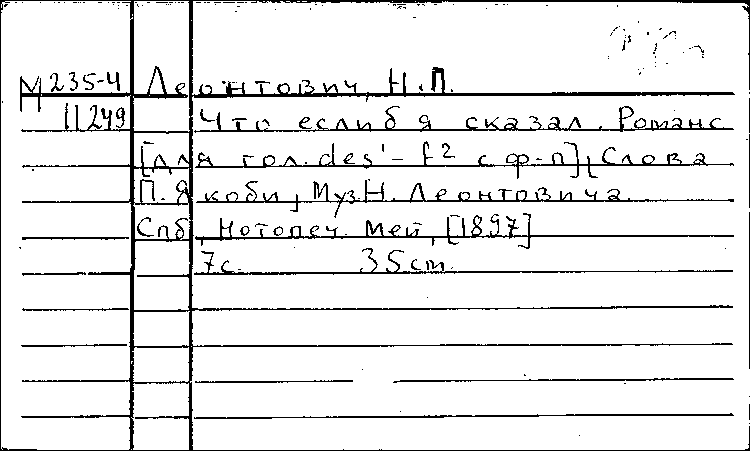 М 235-4 Леонтович, Н.П.
11249 Что еслиб я сказал. Романс
[для гол. des'- f² с ф-п], Слова
П. Якоби, Муз Н. Леонтовича.
Спб, Нотопеч. Мей, [1897]
7с. 35 cm.